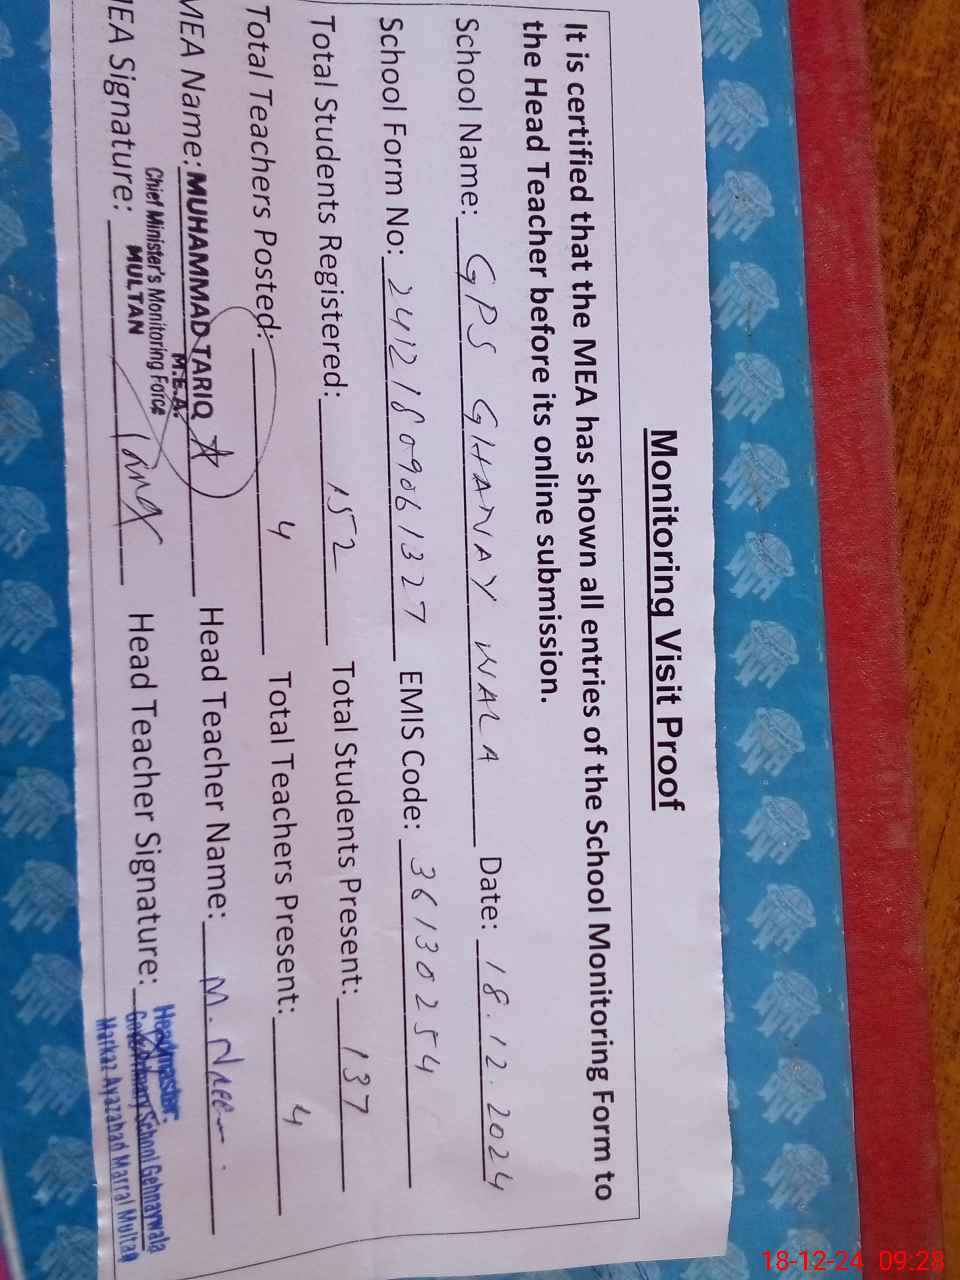 Monitoring Visit Proof
It is certified that the MEA has shown all entries of the School Monitoring Form to
the Head Teacher before its online submission.
School Name: GPS GHANAY WALA Date: 18.12.2024
School Form No: 24121809061327 EMIS Code: 36130254
Total Students Registered: 152 Total Students Present: 137
Total Teachers Posted: 4 Total Teachers Present: 4
MEA Name: MUHAMMAD TARIQ Head Teacher Name: M.
M.E.A.
Chief Minister's Monitoring Force
MULTAN
EA Signature: Head Teacher Signature:
Headmaster
Govt. Primary School Gehnaywala
Markaz Ayazabad Marral Multan
18-12-24 09:28